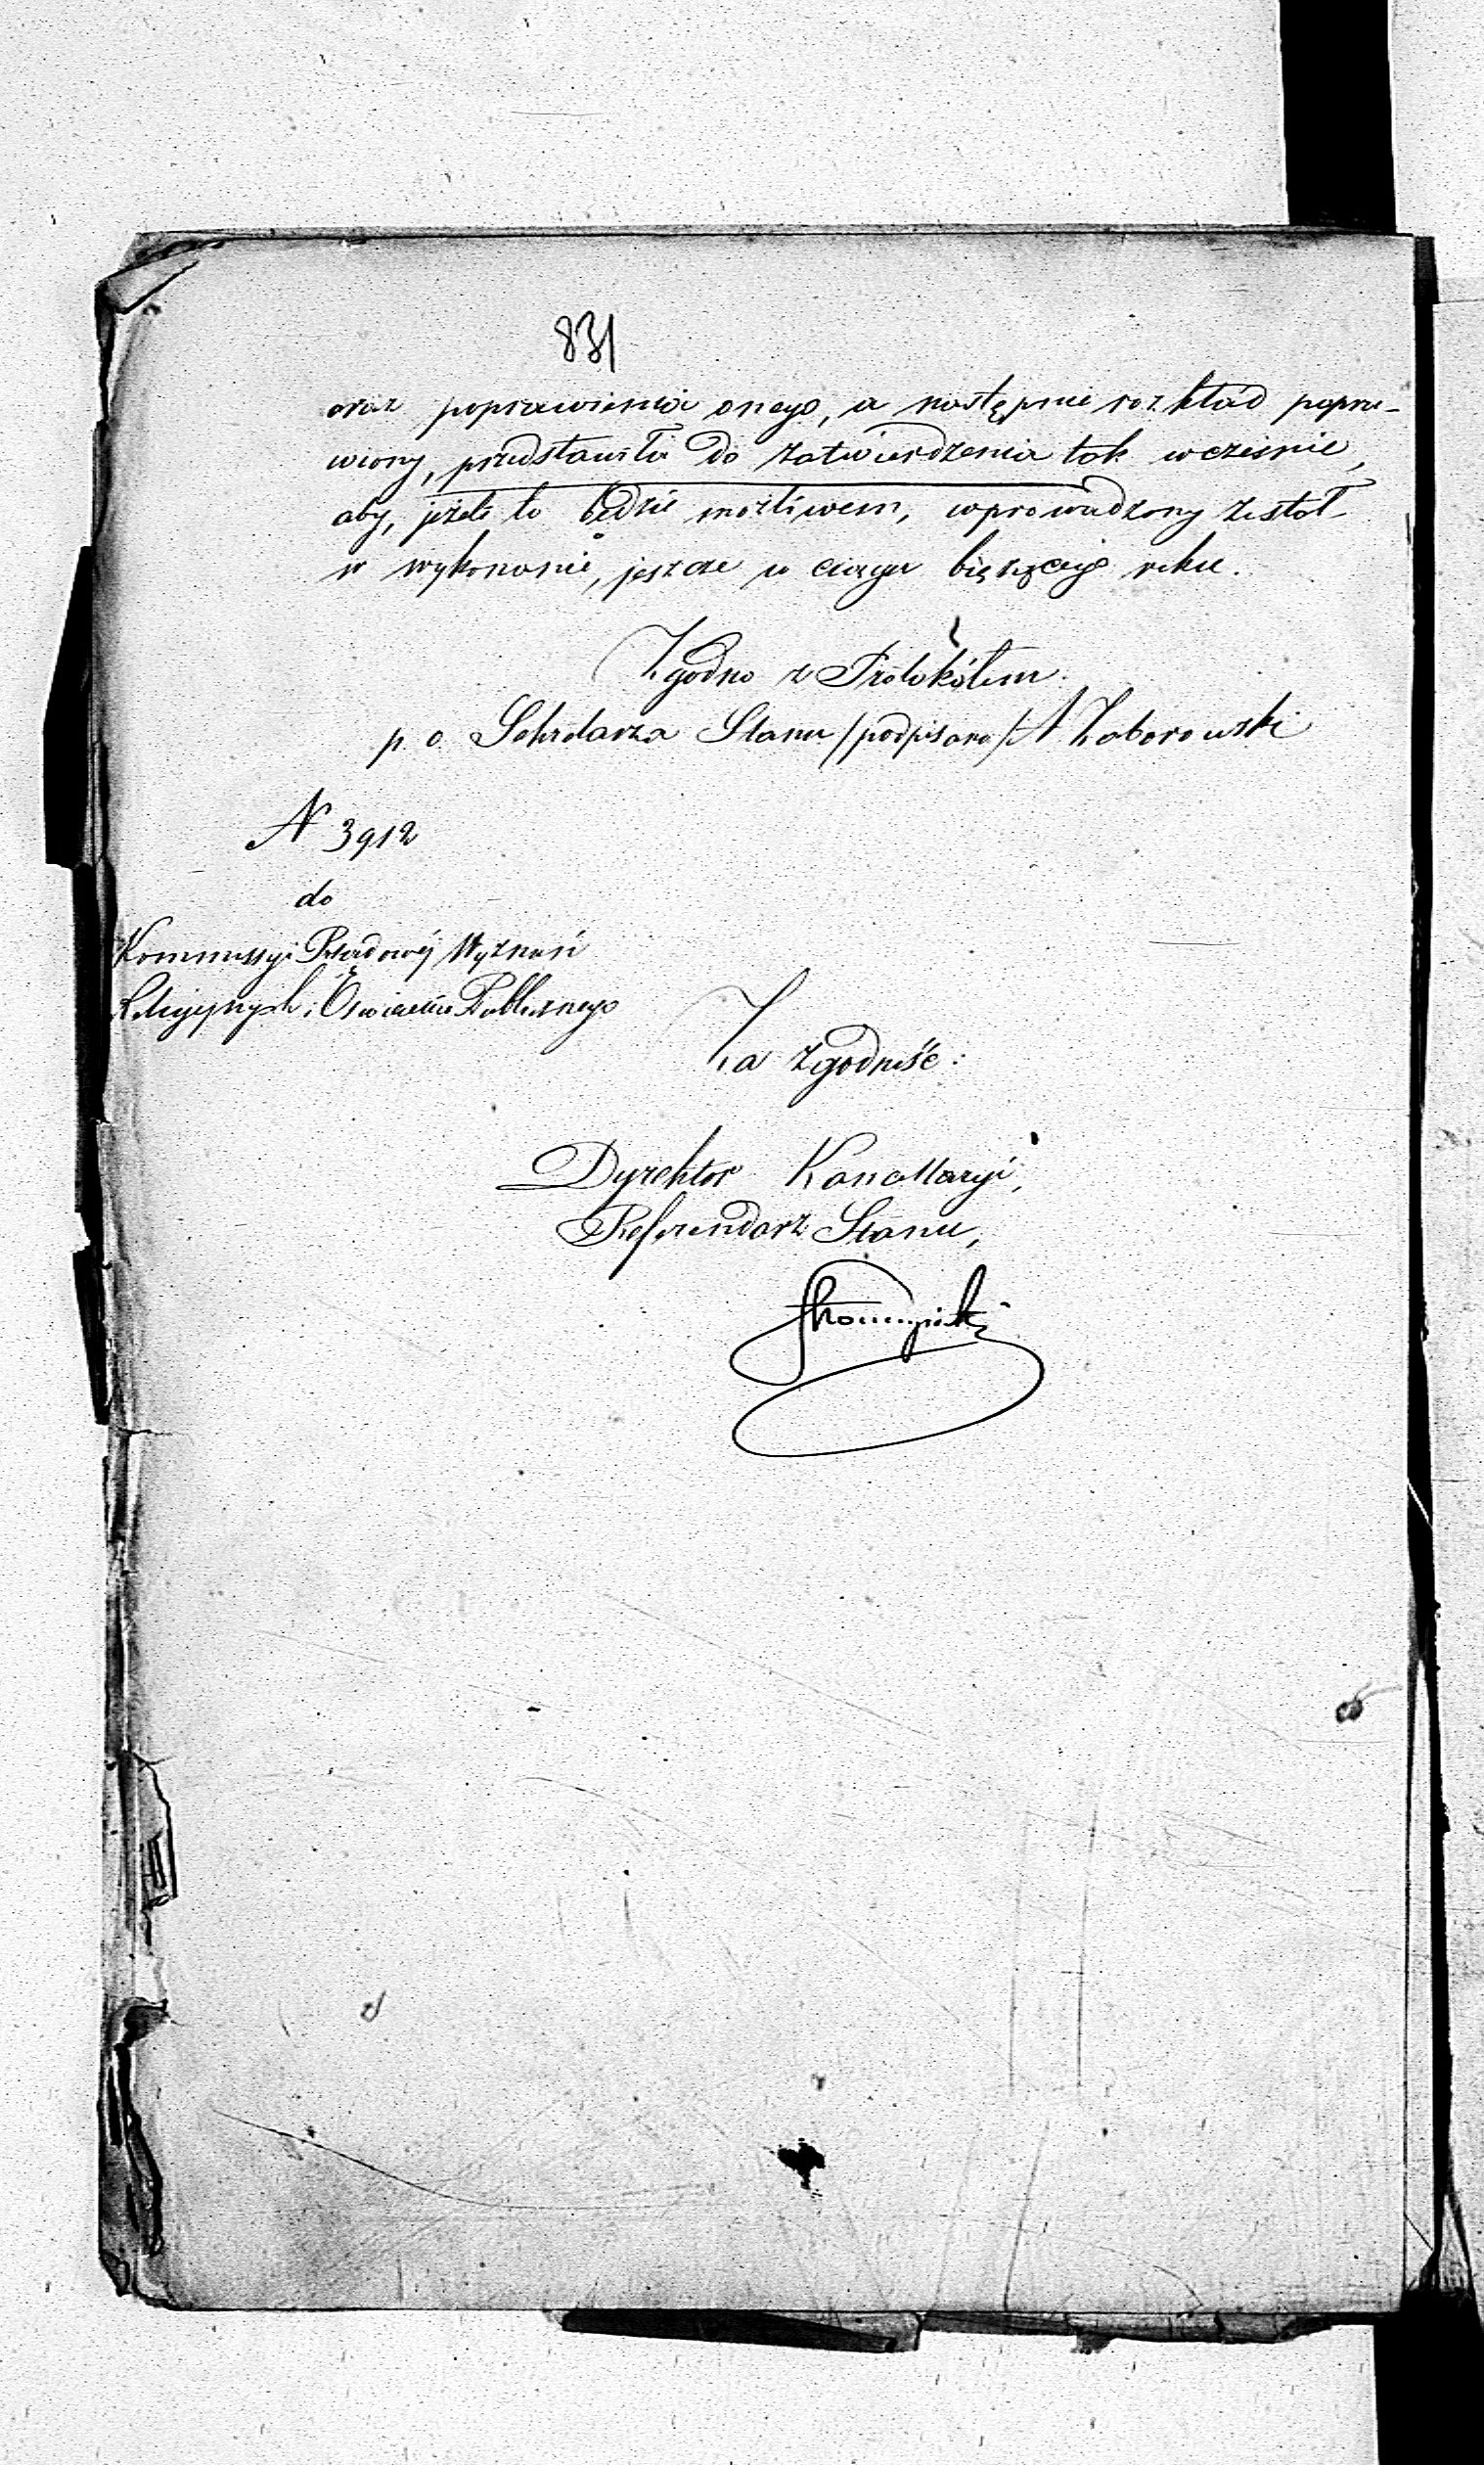 831
oraz poprawienia onego, a następnie rozkład popra-
wiony, przedstawiła do zatwierdzenia tak wcześnie,
aby, jeżeli to będzie możliwem, wprowadzony został
w wykonanie, jeszcze w ciągu bieżącego roku.
Zgodno z Protokółem.
p. o. Sekretarza Stanu /podpisano/ A Zaborowski
N 3912
do
Kommissyi Rządowéj Wyznań
Religijnych i Oświecenia Publicznego
Za zgodność:
Dyrektor Kancellaryi,
Referendarz Stanu,